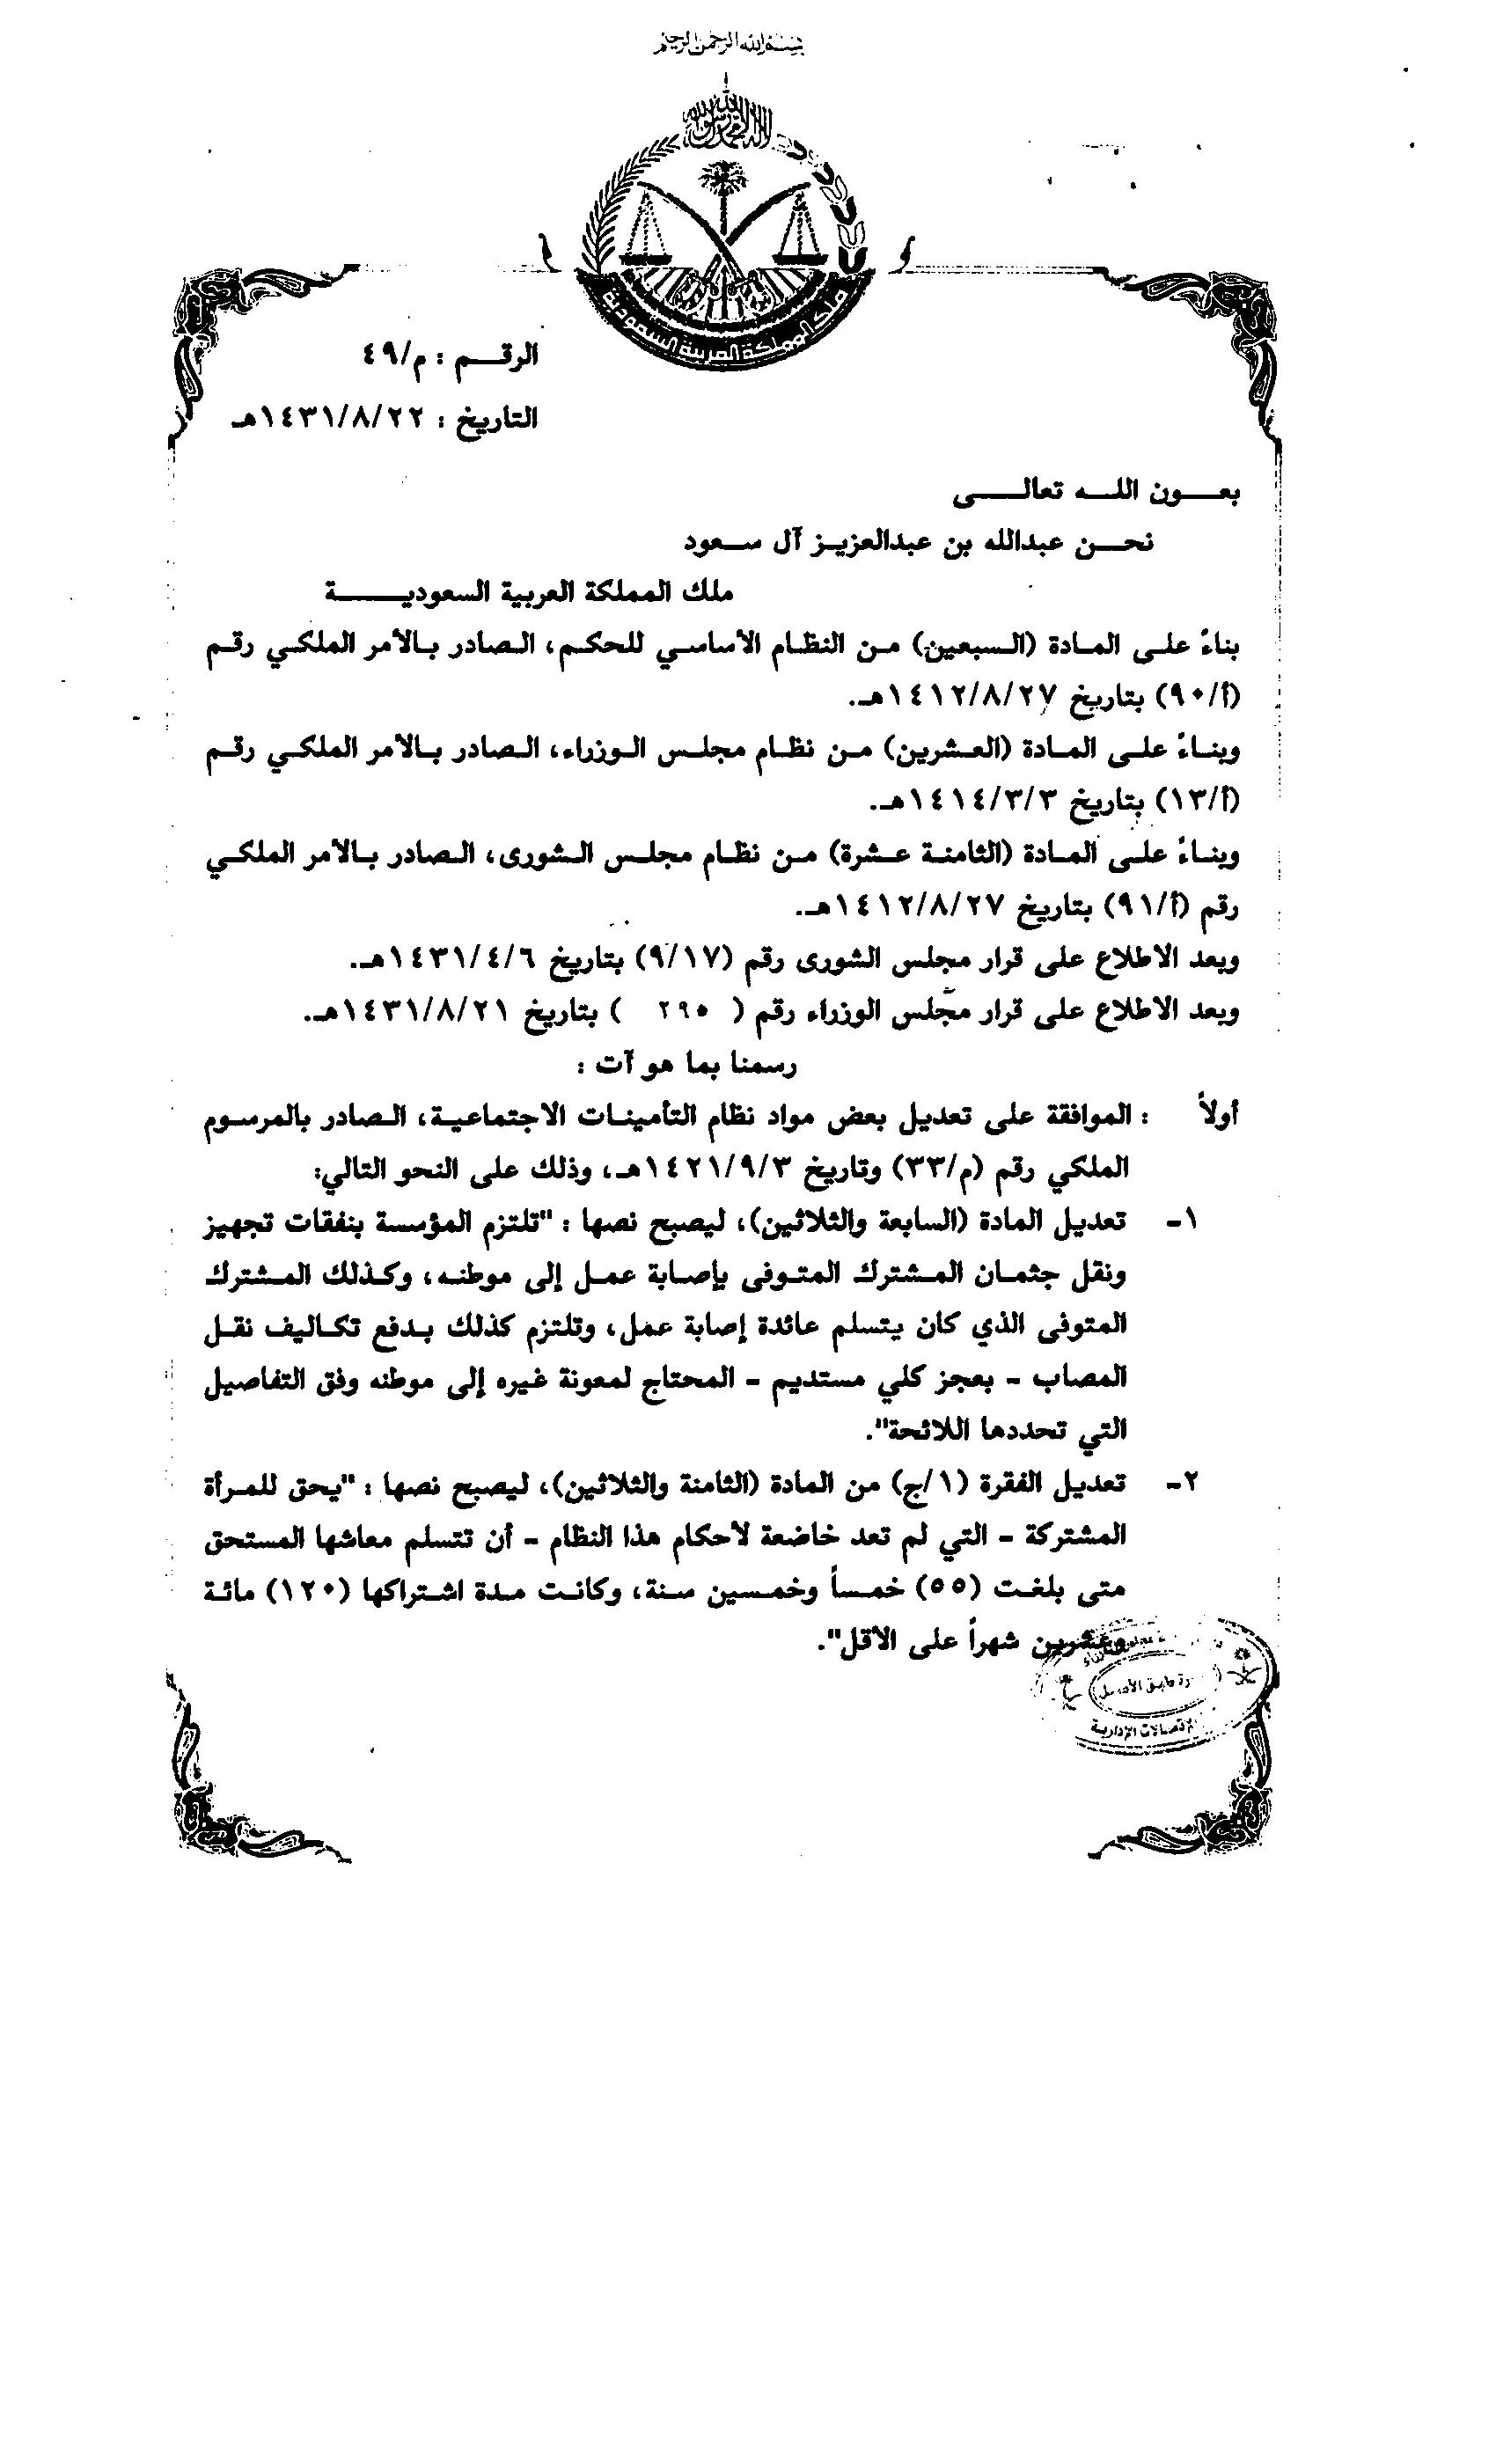 بسم الله الرحمن الرحيم
لا إله إلا الله محمد رسول الله
ملك المملكة العربية السعودية
الرقـــم : م/٤٩
التاريخ : ١٤٣١/٨/٢٢هـ
بعـــون اللـــه تعالـــى
نحـــن عبدالله بن عبدالعزيـز آل سـعود
ملك المملكة العربية السعوديـــــة
بناءً علـى المـادة (السبعين) مـن النظـام الأساسـي للحكـم، الصادر بـالأمر الملكـي رقـم
(أ/٩٠) بتاريخ ١٤١٢/٨/٢٧هـ.
وبنـاءً علـى المـادة (العـشرين) مـن نظـام مجلـس الـوزراء، الـصادر بـالأمر الملكـي رقـم
(أ/١٣) بتاريخ ١٤١٤/٣/٣هـ.
وبنـاءً علـى المادة (الثامنـة عـشرة) مـن نظـام مجلـس الـشورى، الـصادر بـالأمر الملكـي
رقم (أ/٩١) بتاريخ ١٤١٢/٨/٢٧هـ.
وبعد الاطلاع على قرار مجلس الشورى رقم (٩/١٧) بتاريخ ١٤٣١/٤/٦هـ.
وبعد الاطلاع على قرار مجلس الوزراء رقم ( ٢٩٥ ) بتاريخ ١٤٣١/٨/٢١هـ.
رسمنا بما هو آت :
أولاً : الموافقة على تعديل بعض مواد نظام التأمينـات الاجتماعيـة، الـصادر بالمرسوم
الملكي رقم (م/٣٣) وتاريخ ١٤٢١/٩/٣هـ، وذلك على النحو التالي:
١- تعديل المادة (السابعة والثلاثين)، ليصبح نصها : "تلتزم المؤسسة بنفقات تجهيز
ونقل جثمـان المـشترك المتـوفى بإصـابة عمـل إلى موطنـه، وكـذلك المـشترك
المتوفى الذي كان يتسلم عائدة إصابة عمل، وتلتزم كذلك بـدفع تكـاليف نقـل
المصاب - بعجز كلي مستديم - المحتاج لمعونة غيره إلى موطنه وفق التفاصيل
التي تحددها اللائحة".
٢- تعديل الفقرة (١/ج) من المادة (الثامنة والثلاثين)، ليصبح نصها : "يحق للمـرأة
المشتركة - التي لم تعد خاضعة لأحكام هذا النظام - أن تتسلم معاشها المستحق
متى بلغـت (٥٥) خمسـاً وخمـسين سـنة، وكانـت مـدة اشـتراكها (١٢٠) مائـة
وعشرين شهراً على الأقل".
الإتصالات الإدارية